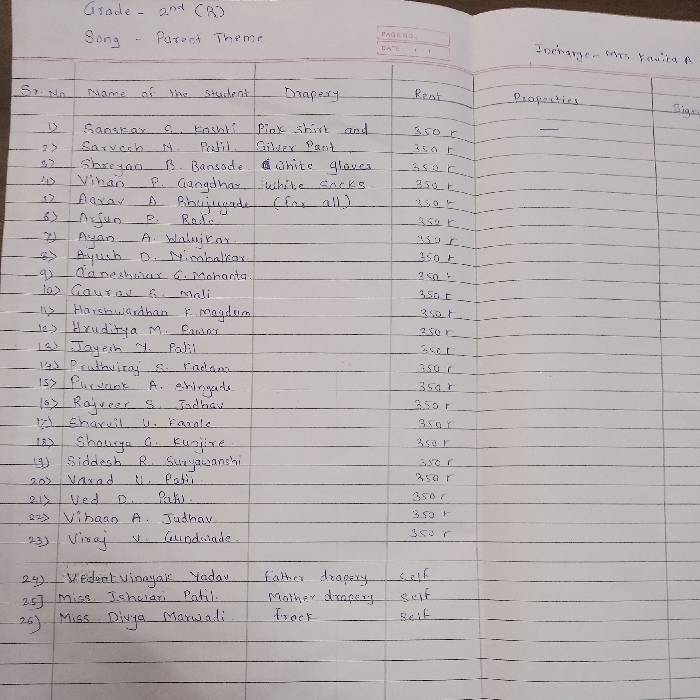 Grade - 2nd (R)
Song - Parent Theme
PAGE NO.
DATE
Incharge - Mrs. Kavita A
Sr. No Name of the student Drapery Rent Properties Sign
1) Sanskar S. Koshti Pink shirt and 350 r —
2) Sarvesh N. Patil Silver Pant 350 r
3) Shreyan B. Bansode White gloves 350 r
4) Vihan P. Gangdhar White socks 350 r
5) Aarav A. Bhujugade (for all) 350 r
6) Arjun P. 350 r
7) Ayan A. Walujkar 350 r
8) Ayush D. Nimbalkar 350 r
9) Daneshwar G. Mohanta. 350 r
10) Gaurav S. Mali 350 r
11) Harshwardhan K Magdum 350 r
12) Hruditya M. Pawar 350 r
13) Jayesh Y. Patil 350 r
14) Pruthviraj S. Kadam 350 r
15) A. Shingade 350 r
16) Rajveer S. Jadhav 350 r
17) Sharvil U. Karale 350 r
18) Shourya G. Kunjire 350 r
19) Siddesh R. Suryawanshi 350 r
20) Varad U. Patil 350 r
21) Ved D. Patil 350 r
22) Vihaan A. Jadhav 350 r
23) Viraj V. Gundwade 350 r
24) Vedant Vinayak Yadav Father drapery self
25) Miss. Ishwari Patil Mother drapery self
26) Miss Divya Marwadi frock self